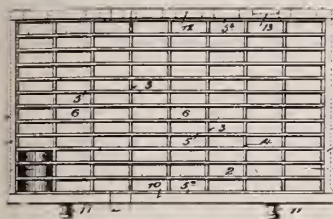 12 5ª 13
3
5'
6 6
3
5' 4
2
10 5ª
11 11